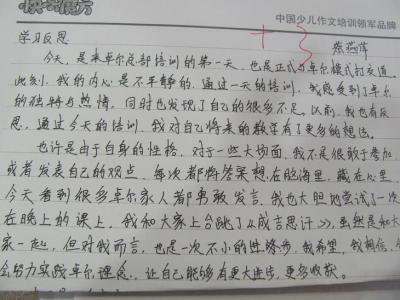 快乐魔方
中国少儿作文培训领军品牌
学习反思
蔡燕萍
今天，是来卓尔总部培训的第一天，也是正式与卓尔模式打交道。
此刻，我的内心是不平静的，通过一天的培训，我感受到了卓尔
的独特与热情，同时也发现了自己的很多不足。以前，我也有反
思，通过今天的培训，我对自己将来的教学有了更多的想法。
也许是由于自身的性格，对于一些大场面，我不是很敢于参加
或者发表自己的观点，每次都将答案想在脑海里，藏在心里，
今天看到很多卓尔家人都勇敢发言，我也大胆地尝试了一次
在晚上的课上，我和大家上台跳了《成言思汗》，虽然是和大
家一起，但对我而言，也是一次不小的进步，我希望，我相信，
会努力实践卓尔理念，让自己能够有更大进步，更多收获。